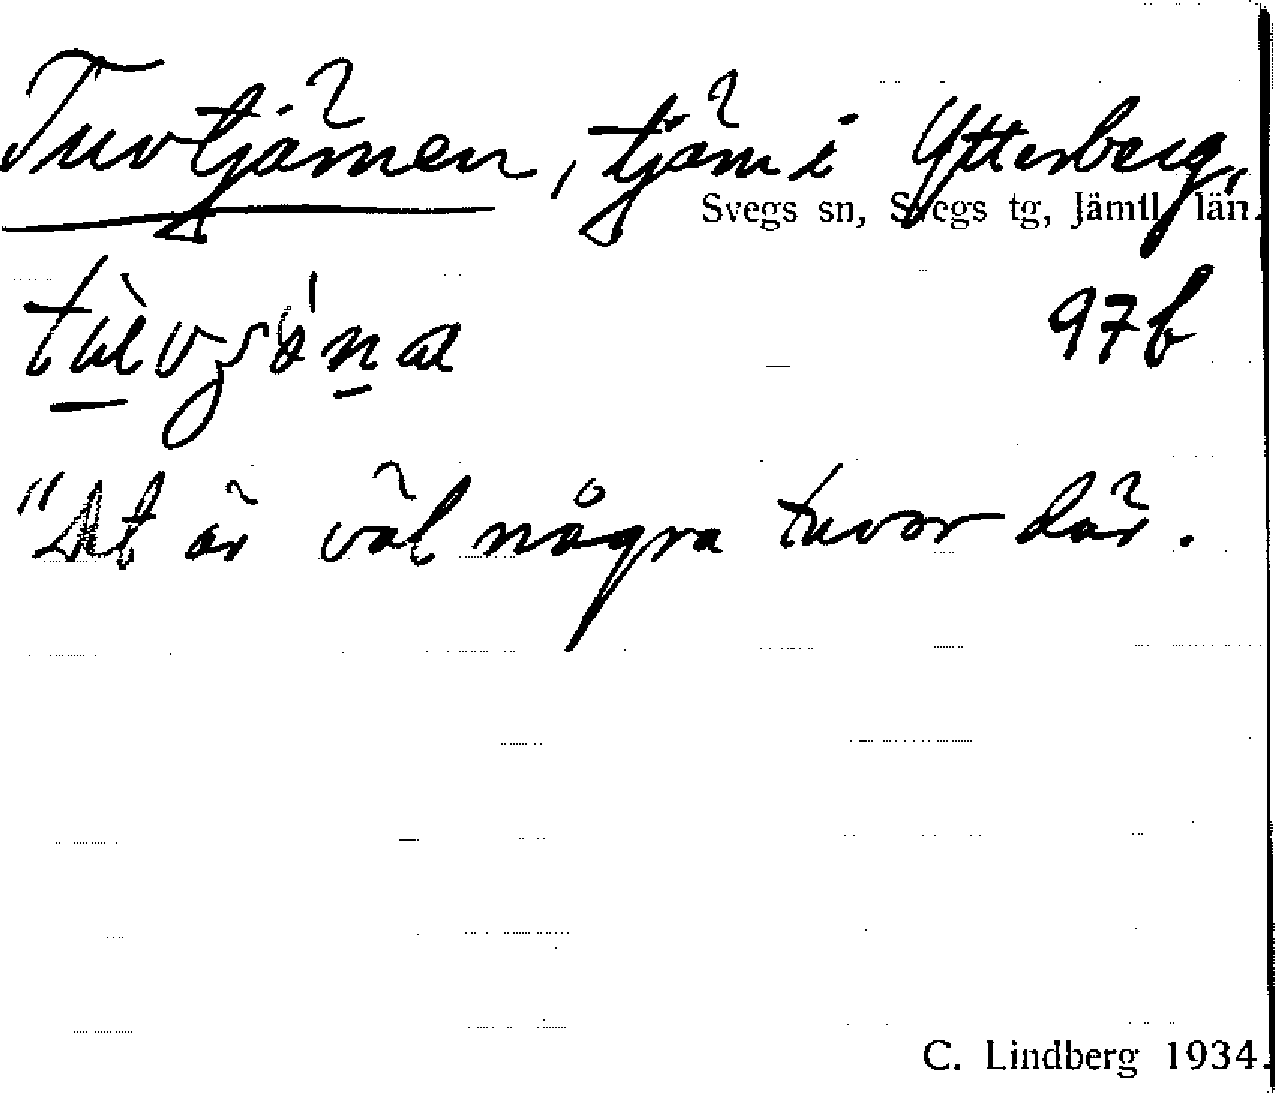 Tuvtjärnen, tjärn i Ytterberg,
Svegs sn, Svegs tg, Jämtl. län.
97b
"Det är väl några tuvor där.
C. Lindberg 1934.